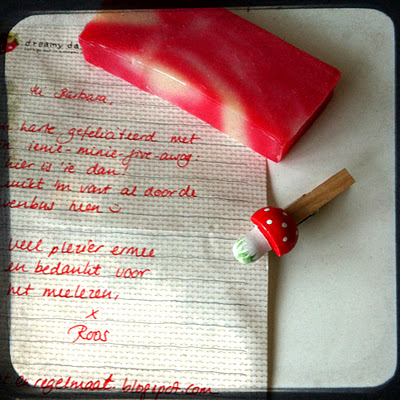 dreamy da
Hi Barbara,
harte gefeliciteerd met
ienie-minie-give-away:
hier is 'ie dan!
ruikt 'm vast al door de
venbus heen
veel plezier ermee
en bedankt voor
het meelezen,
x
Roos
regelmaat.blogspot.com